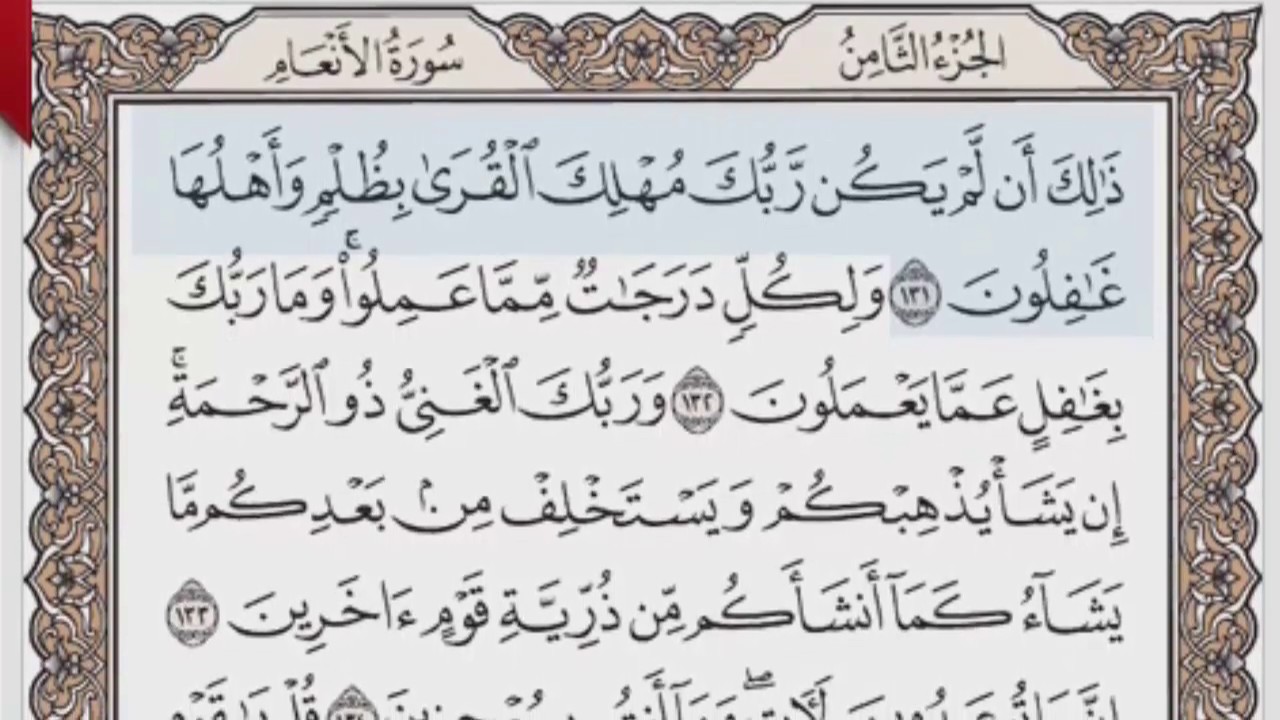 الجُزْءُ الثَّامِنُ سُورَةُ الأَنْعَامِ
ذَٰلِكَ أَن لَّمْ يَكُن رَّبُّكَ مُهْلِكَ ٱلْقُرَىٰ بِظُلْمٍ وَأَهْلُهَا
غَٰفِلُونَ ١٣١ وَلِكُلٍّ دَرَجَٰتٌ مِّمَّا عَمِلُوا۟ ۚ وَمَا رَبُّكَ
بِغَٰفِلٍ عَمَّا يَعْمَلُونَ ١٣٢ وَرَبُّكَ ٱلْغَنِىُّ ذُو ٱلرَّحْمَةِ ۚ
إِن يَشَأْ يُذْهِبْكُمْ وَيَسْتَخْلِفْ مِنۢ بَعْدِكُم مَّا
يَشَآءُ كَمَآ أَنشَأَكُم مِّن ذُرِّيَّةِ قَوْمٍ ءَاخَرِينَ ١٣٣